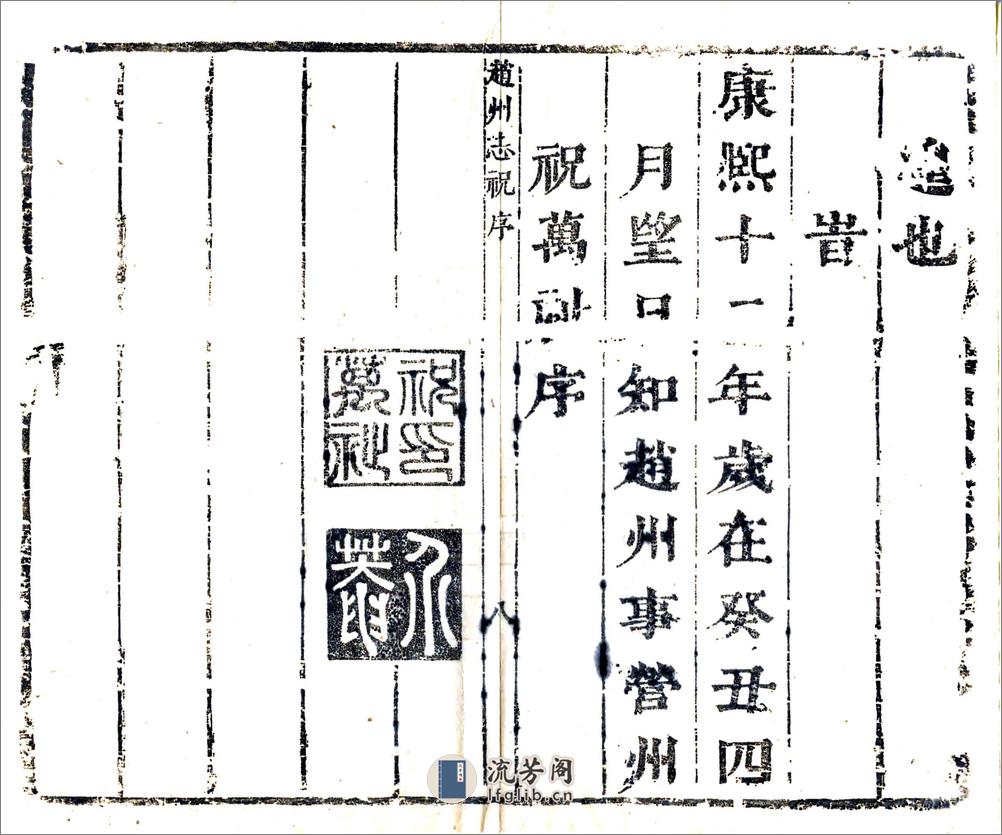 也
旹
康熙十二年歲在癸丑四
月望日知趙州事營州
祝萬祉序
趙州志祝序 八
祝印萬祉
流芳阁
lfglib.cn